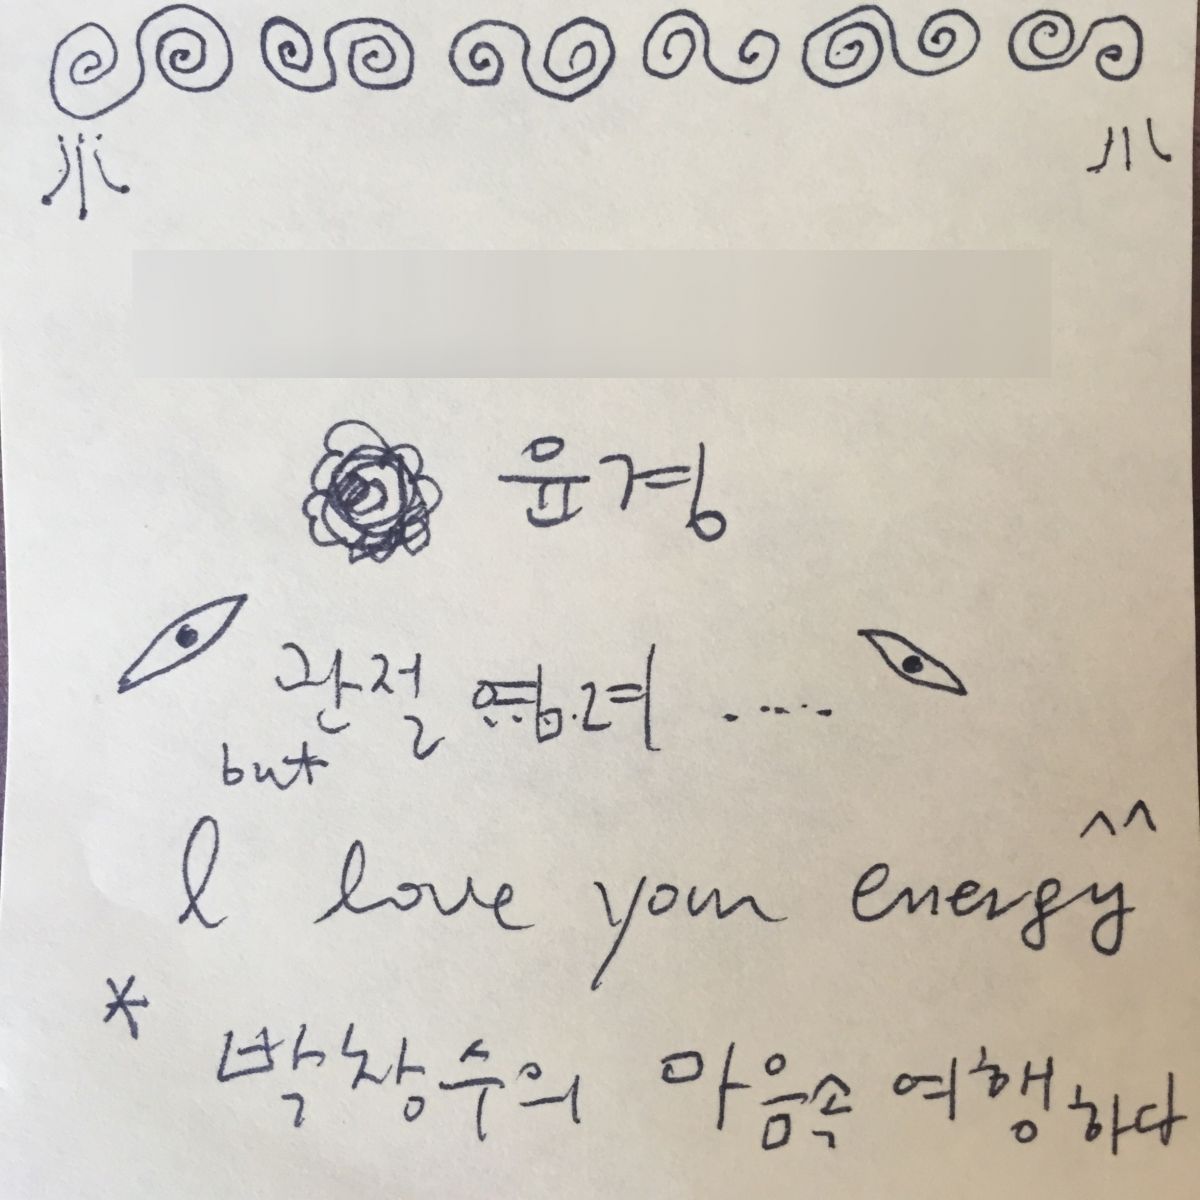 윤경
관절 염려 .....
but
I love your energy ^^
* 박창수의 마음속 여행하다